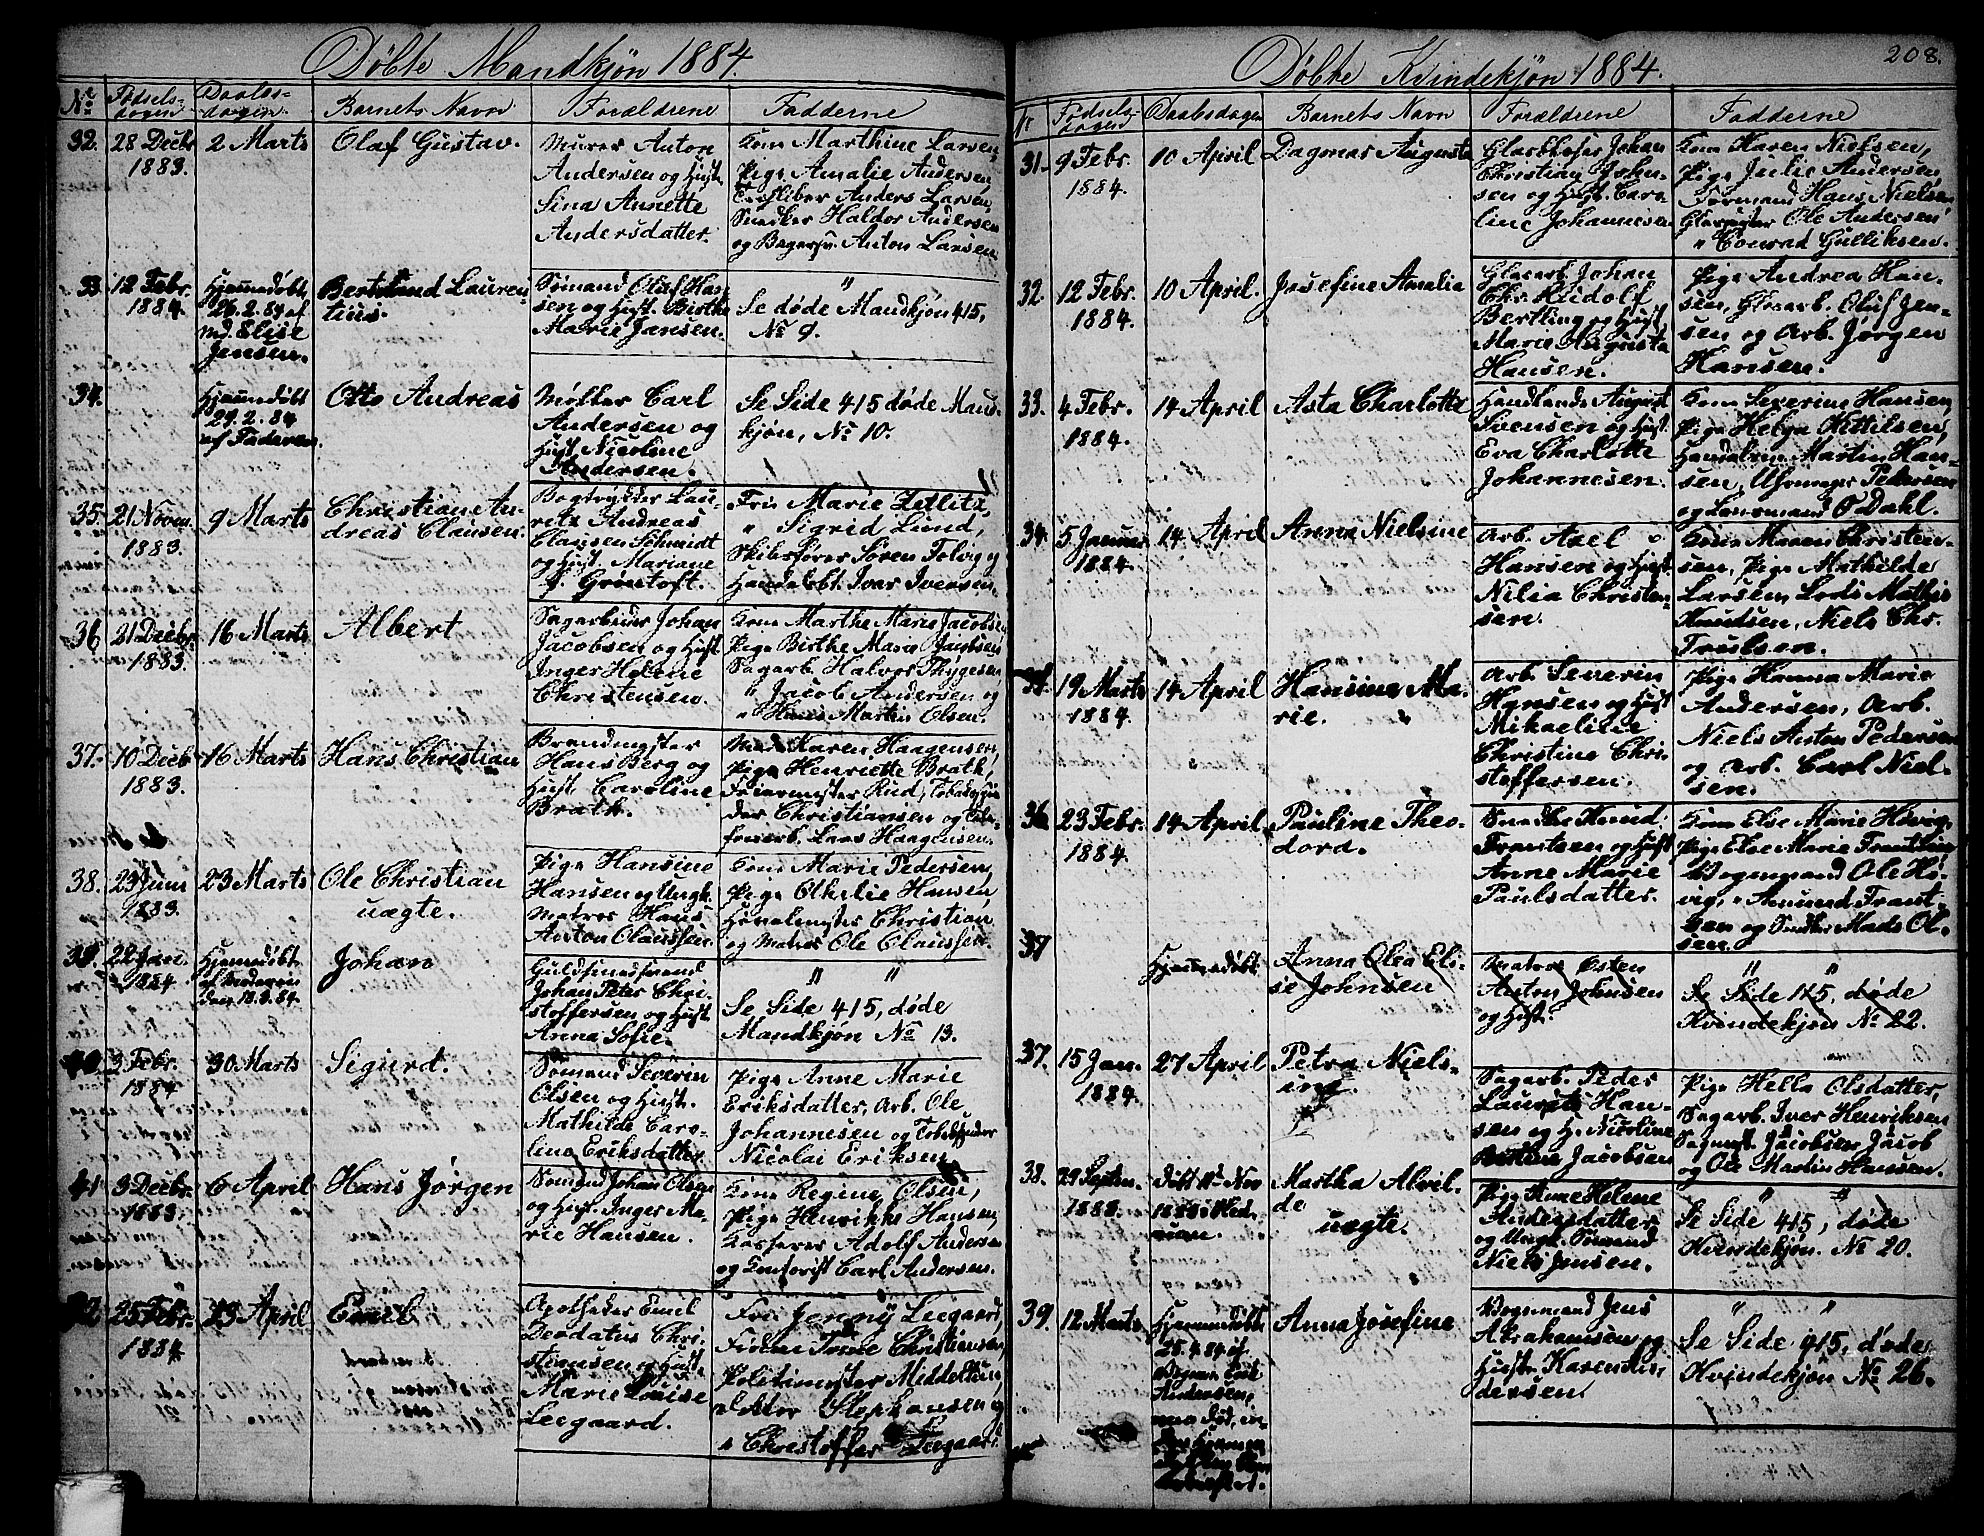 Døbte Mandkjøn 1884.
No Fødselsdagen Daabsdagen Barnets Navn Forældrene Fadderne
32. 28 Decbr 1883. 2 Marts Olaf Gustav.
Murer Anton
Andersen og Hust.
Lina Annette
Andersdatter.
Kone Marthine Larsen,
Pige Amalie Andersen,
Anders Larsen,
Snedker Haldor Andersen
og Bagersv. Anton Larsen.
33 12 Febr. 1884.
Hjemmedøbt
26.2.84 af
Md. Elise
Jensen.
Bertrand Lauren-
tius.
Sømand Olaf Han-
sen og Hust. Birthe
Marie Jansen.
"
Se døde Mandkjøn 415,
No 9.
34.
Hjemmedøbt
29.2.84
af Faderen.
Otto Andreas
Møller Carl
Andersen og
Hust. Nicoline
Andersen.
Se Side 415 døde Mand-
kjøn, No 10.
35. 21 Novem. 1883. 9 Marts
Christiane An-
dreas Clausen.
Bogtrykker Lau-
ritz Andreas
Clausen Schmidt
og Hust. Mariane
J. Grøntoft.
Fru Marie Zetlitz,
" Sigrid Lund,
Skibsfører Søren Tolvg og
Handelsbt. Ivar Iversen.
36 21 Decbr. 1883. 16 Marts Albert
Sagarbeider Johan
Jacobsen og Hust.
Inger Helene
Christensen.
Kone Marthe Marie Jacobsen,
Pige Birthe Marie Jacobsen
Sagarb. Halvor Thygesen
" Jacob Andersen og
" Hans Martin Olsen.
37. 10 Decb 1883. 16 Marts Hans Christian
Brandmester
Hans Berg og
Hust. Caroline
Brath.
Mad. Karen Haagensen,
Pige Henriette Brath,
Feiermester Rud, Tobakspin
der Christiansen og
Lars Haagensen.
38. 23 Juni 1883. 23 Marts
Ole Christian
uægte.
Pige Hansine
Hansen og Ungk.
Matros Hans
Anton Claussen.
Kone Marie Pedersen,
Pige Othilie Hansen,
Christian
og Matros Ole Claussen.
39. 22 Jan. 1884
Hjemmedøbt
af Moderen
den 18.3.84.
Johan
Guldsmedsvend
Johan Peter Chri-
stoffersen og Hust.
Anna Sofie.
" "
Se Side 415, døde
Mandkjøn No 13.
40. 3 Febr. 1884 30 Marts Sigurd.
Sømand Severin
Olsen og Hust.
Mathilde Caro-
line Eriksdatter.
Pige Anne Marie
Eriksdatter, Arb. Ole
Johannesen og Tobakspinder
Nicolai Eriksen.
41 3 Decbr. 1883. 6 April Hans Jørgen
Sømand Johan Olsen
og Hust. Inger Ma-
rie Hansen.
Kone Regine Olsen,
Pige Henrikke Hansen,
Adolf Andersen
og Carl Andersen.
42 25 Febr. 1884. 13 April Emil
Apotheker Emil
Deodatus Chri-
stensen og Hust.
Marie Louise
Leegaard.
Fru Jenny Leegaard,
Trine Christiansen,
Politimester Middelthun,
Doktor Stephansen og
" Christoffer Leegaard.
Døbte Kvindekjøn 1884. 208.
No Fødselsdagen Daabsdagen Barnets Navn Forældrene Fadderne
31. 9 Febr. 1884. 10 April Dagmar Augusta
Johan
Christian John-
sen og Hust. Caro
line Johannesen
Kone Karen Nielsen,
Pige Julie Andersen,
Formand Hans Nielsen
Ole Andersen
" Conrad Gulliksen.
32. 12 Febr. 1884. 10 April. Josefine Amalia
Glasarb. Johan
Chr. Rudolf
Bertling og Hust.
Marie Augusta
Hansen.
Pige Andrea Han-
sen, Glasarb. Oluf Jen-
sen og Arb. Jørgen
Hansen.
33. 4 Febr. 1884. 14 April Asta Charlotte
Handlende August
Svensen og Hust.
Eva Charlotte
Johannesen.
Kone Severine Hansen,
Pige Helga Kittilsen,
Martin Han-
sen, Pedersen
og Lensmand O Dahl.
34. 5 Januar 1884. 14 April Anna Nielsine
Arb. Axel
Hansen og Hust.
Nilia Christen-
sen.
Kone Maren Christen-
sen, Pige Mathilde
Larsen, Lods Mathis
Knudsen, Niels Chr.
Trulsen.
35. 19 Marts 1884. 14 April
Hansine Ma-
rie.
Arb. Severin
Hansen og Hust
Mikaeline
Christine Chri-
stoffersen.
Pige Hanna Marie
Andersen, Arb.
Niels Anton Pedersen
og Arb. Carl Niel-
sen.
36 23 Febr. 1884. 14 April.
Pauline Theo-
dora.
Snedker Knud
Frantsen og Hust
Anne Marie
Paulsdatter.
Kone Else Marie Høvig,
Pige Else Marie Frantsen,
Vognmand Ole Hø-
vig, " Amund Frant-
sen og Snedker Mads Ol-
sen.
37
Hjemmedøbt
Anna Olea Eli-
se Johnsen
Matros Osten
Anton Johnsen
og Hust.
" "
Se Side 415, døde
Kvindekjøn No 22.
37. 15 Jan. 1884. 27 April
Petra Niels-
ine
Sagarb. Peder
Laurits Han-
sen og H. Nicoline
Bertine Jacobsen
Pige Hella Olsdatter,
Sagarb. Iver Henriksen
Jacobsen, Jacob
og Ole Martin Hansen.
38. 29 Septem. 1883.
Døbt 11te Nov
1883 i Hed-
rum.
Martha Alvil-
de
uægte.
Pige Anne Helene
Andersdatter
og Ungk. Sømand
Niels Jensen.
" "
Se Side 415, døde
Kvindekjøn. No 20.
39. 12 Marts
Hjemmedøbt
25.4.84 af
Andersen,
Anna Josefine
Vognmand Jens
Abrahamsen og
Hust. Karen An-
dersen.
" "
Se Side 415, døde
Kvindekjøn No 26.